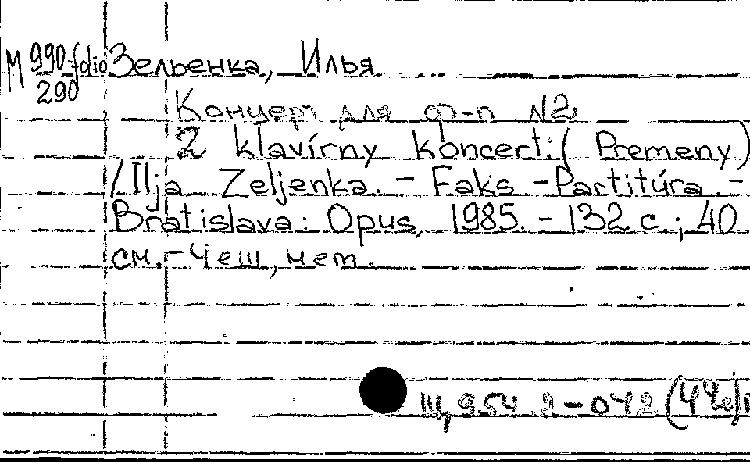 М 990-folio Зельенка, Илья
290
Концерт для ф-п N2
2 klavírny koncert: (Premeny)
/ Ilja Zeljenka. - Faks - Partitúra. -
Bratislava: Opus, 1985. - 132 с.; 40
см. - Чеш, нем.
Щ, 954.2-042 (4Че)